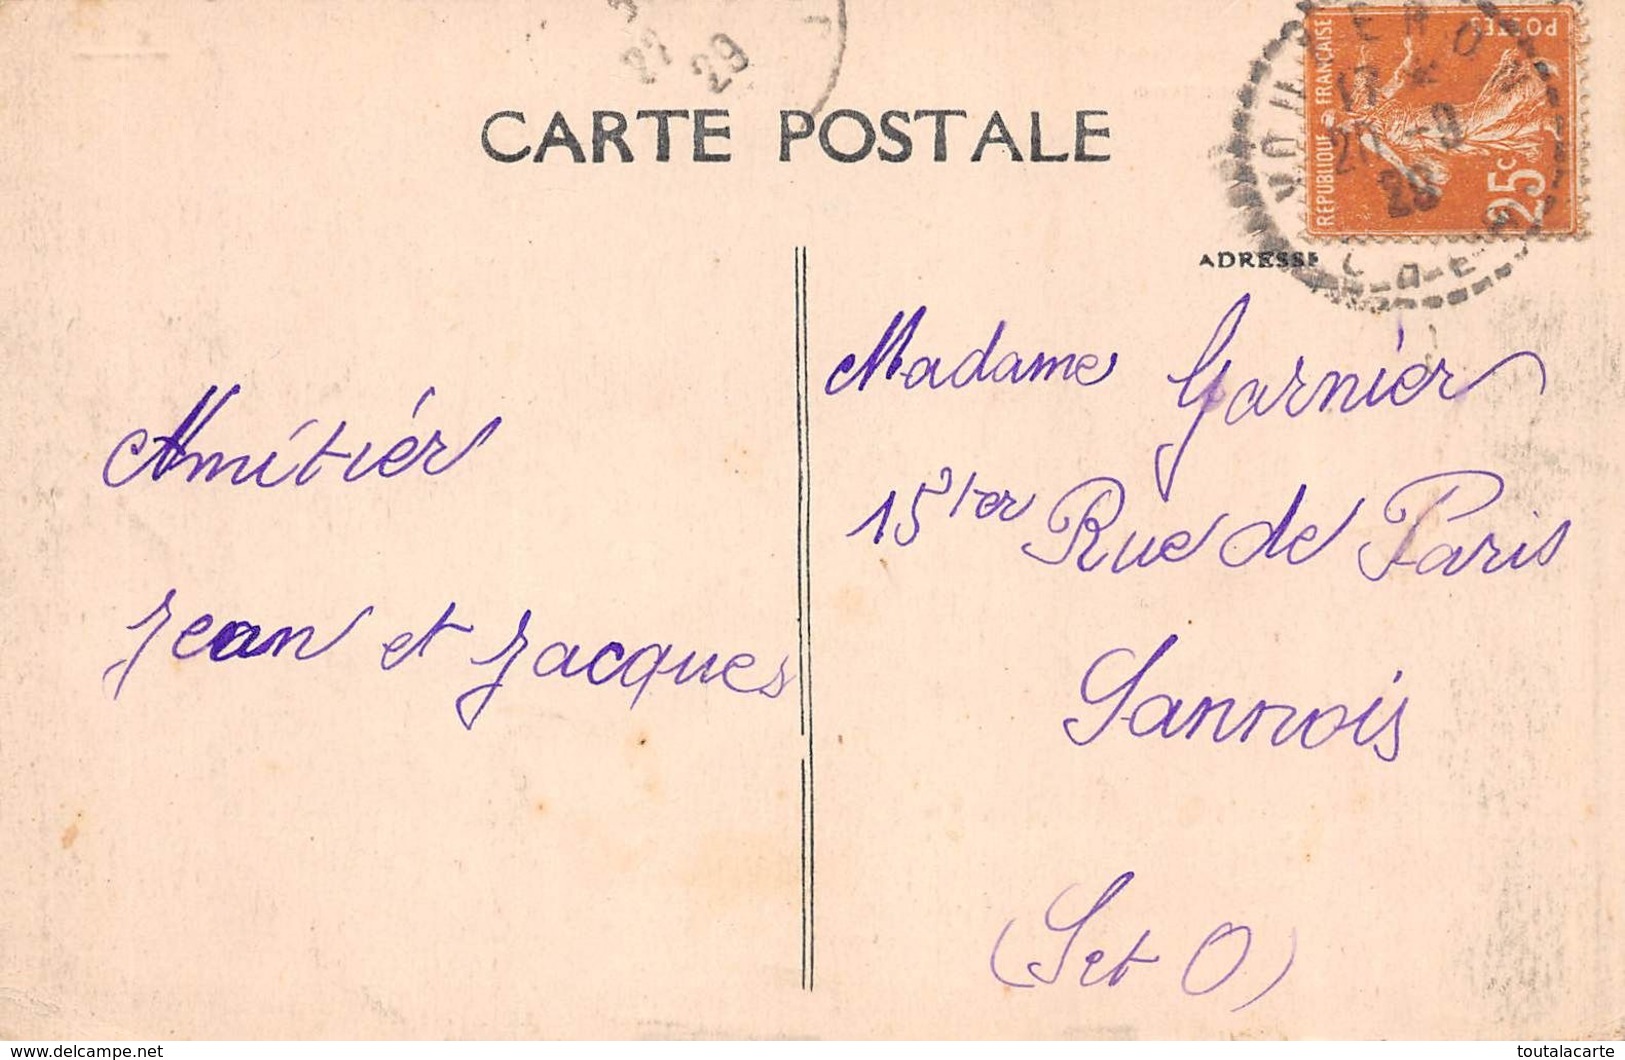 22
29
CARTE POSTALE
REPUBLIQUE FRANÇAISE
POSTES
25c
17
20 -9
29
ADRESSE
Amitiés
Jean et Jacques
Madame Garnier
15 ter Rue de Paris
Sannois
(S et O)
www.delcampe.net
toutalacarte